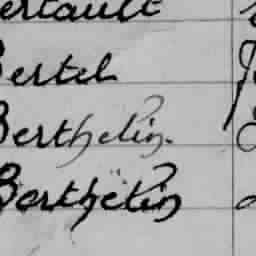 Bertault
Bertel
Berthelin.
Berthelin